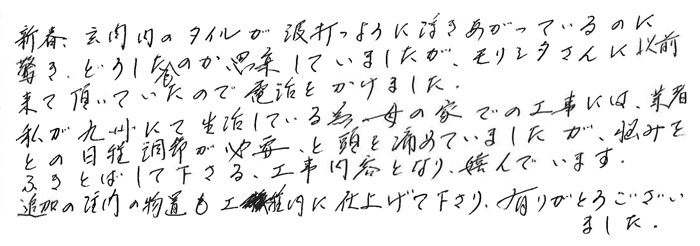 新春、玄関内のタイルが波打つように浮きあがっているのに
驚き、どうしたものか思案していましたが、モリシタさんに以前
来て頂いていたので電話をかけました。
私が九州にて生活している為、母の家での工事には、業者
との日程調節が必要、と頭を痛めていましたが、悩みを
ふきとばして下さる、工事内容となり、喜んでいます。
追加の庭内の物置も工事範囲内に仕上げて下さり、有りがとうござい
ました。